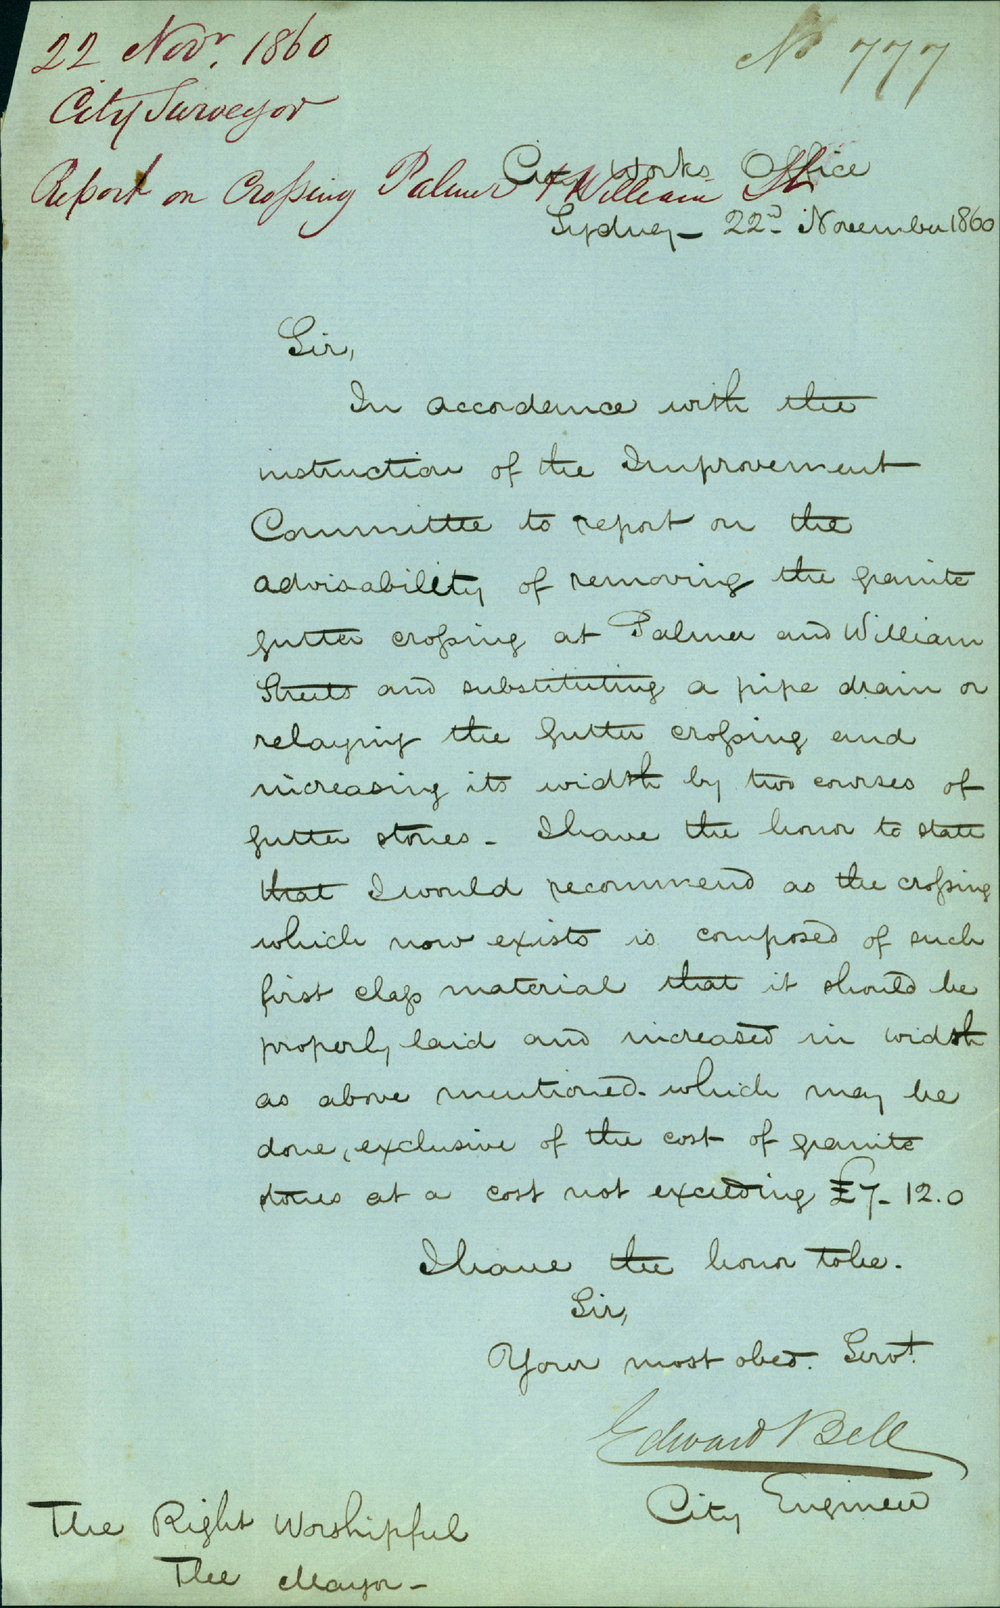 22 Novr. 1860
No 777
City Surveyor
Report on Crossing Palmer & William St
City Works Office
Sydney - 22nd November 1860
Sir,
In accordance with the
instruction of the Improvement
Committee to report on the
advisability of removing the granite
gutter crossing at Palmer and William
Streets and substituting a pipe drain or
relaying the gutter crossing and
increasing its width by two courses of
gutter stones - I have the honor to state
that I would recommend as the crossing
which now exists is composed of such
first class material that it should be
properly laid and increased in width
as above mentioned - which may be
done, exclusive of the cost of granite
stones at a cost not exceeding £7-12.0
I have the honor to be.
Sir,
Your most obed. Servt.
Edward Bell
City Engineer
The Right Worshipful
The Mayor -